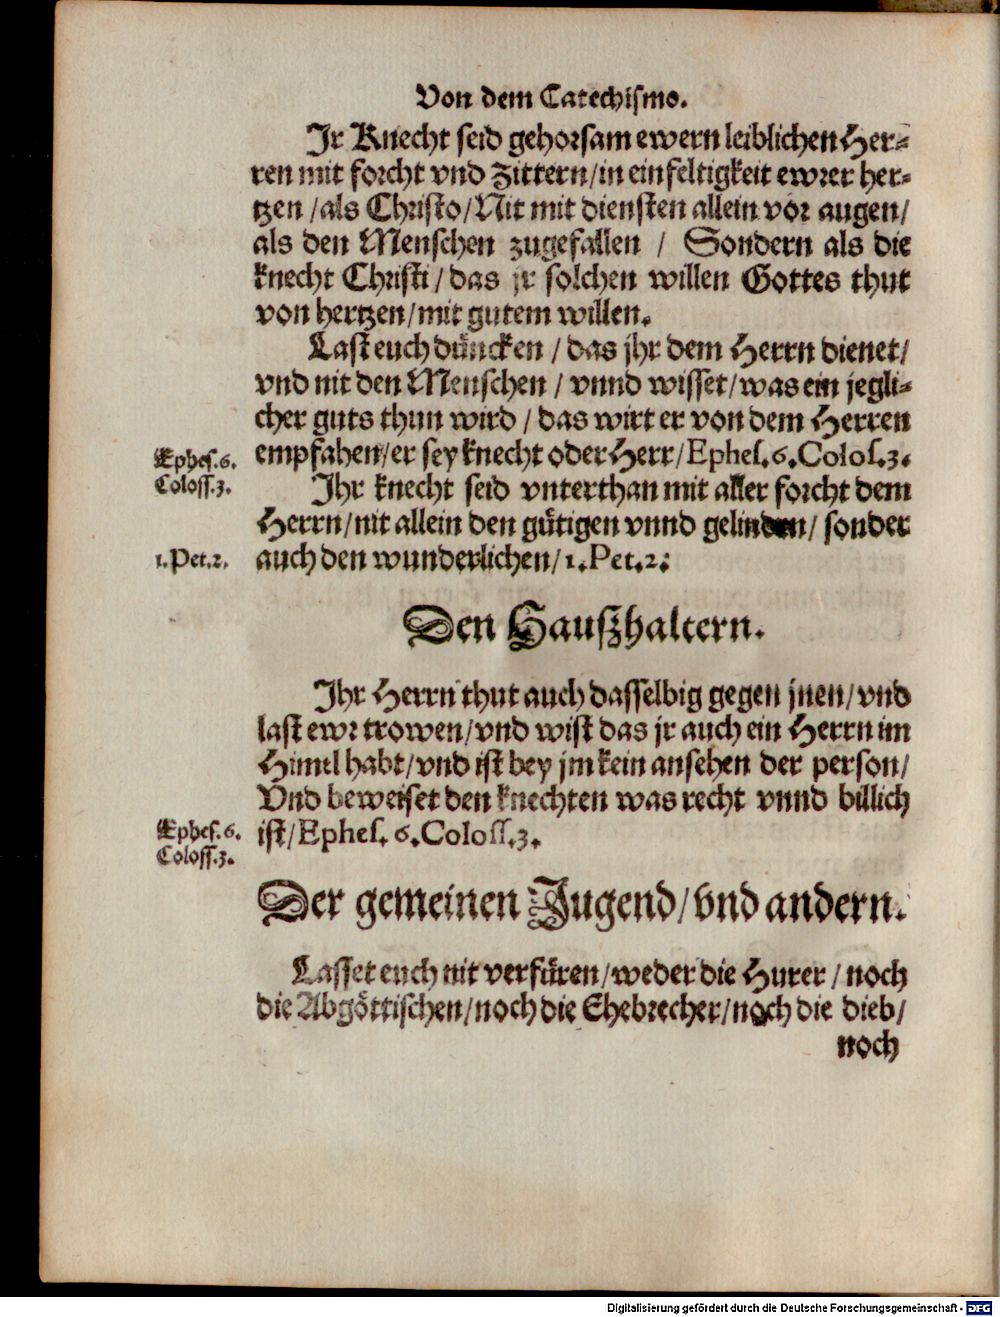 Von dem Catechismo.
Jr Knecht seid gehorsam ewern leiblichen Her⸗
ren mit forcht vnd Zittern/in einfeltigkeit ewrer her⸗
tzen /als Christo/Nit mit diensten allein vor augen/
als den Menschen zugefallen / Sondern als die
knecht Christi/das jr solchen willen Gottes thut
von hertzen/mit gutem willen.
Last euch düncken /das jhr dem Herrn dienet/
vnd nit den Menschen / vnnd wisset/was ein jegli⸗
cher guts thun wird / das wirt er von dem Herren
Ephes.6. empfahen/er sey knecht oder Herr/Ephes.6.Colos.3.
Coloss.3. Jhr knecht seid vnterthan mit aller forcht dem
Herrn/nit allein den gütigen vnnd gelinden/ sonder
1.Pet.2. auch den wunderlichen/1.Pet.2:
Den Haußhaltern.
Jhr Herrn thut auch dasselbig gegen jnen/vnd
last ewr trowen/vnd wist das jr auch ein Herrn im
Himel habt/vnd ist bey jm kein ansehen der person/
Vnd beweiset den knechten was recht vnnd billich
Ephes.6. ist/Ephes. 6.Coloss.3.
Coloss.3.
Der gemeinen Jugend/vnd andern.
Lasset euch nit verfüren/weder die Hurer /noch
die Abgöttischen/noch die Ehebrecher/noch die dieb/
noch
Digitalisierung gefördert durch die Deutsche Forschungsgemeinschaft - DFG